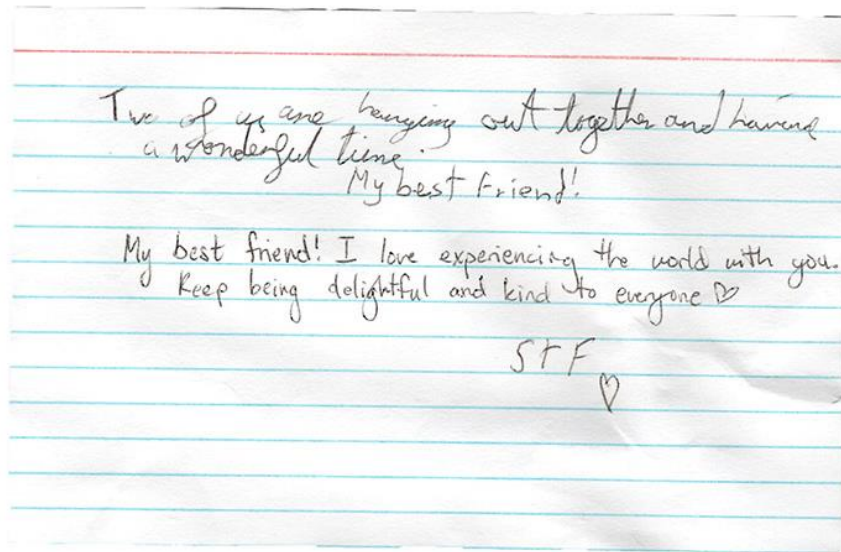 Two of us are hanging out together and having
a wonderful time.
My best Friend!
My best friend! I love experiencing the world with you.
Keep being delightful and kind to everyone ♡
S+F
♡